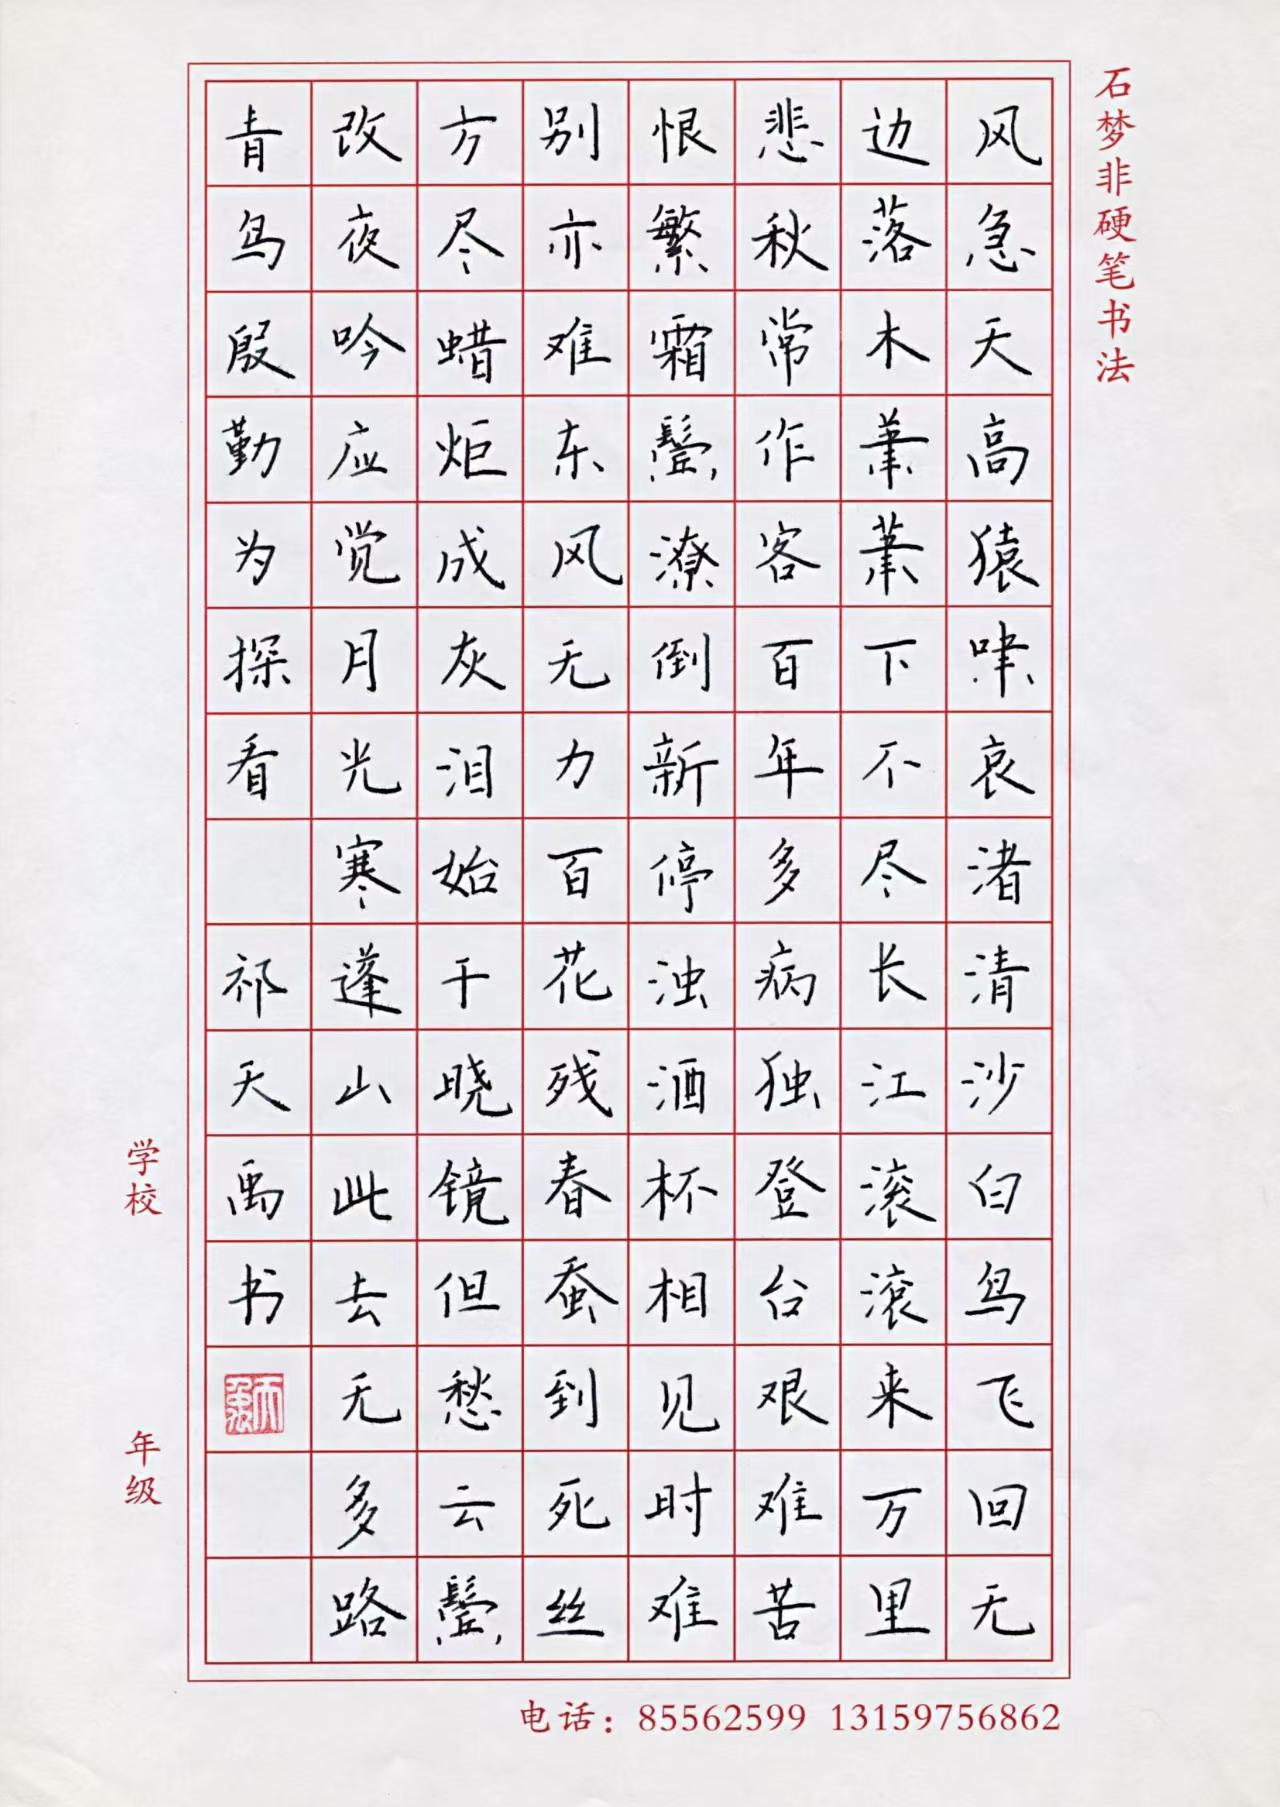 石梦非硬笔书法
风急天高猿啸哀渚清沙白鸟飞回无
边落木萧萧下不尽长江滚滚来万里
悲秋常作客百年多病独登台艰难苦
恨繁霜鬓潦倒新停浊酒杯相见时难
别亦难东风无力百花残春蚕到死丝
方尽蜡炬成灰泪始干晓镜但愁云鬓
改夜吟应觉月光寒蓬山此去无多路
青鸟殷勤为探看 祁天禹书
学校 年级
电话：85562599 13159756862